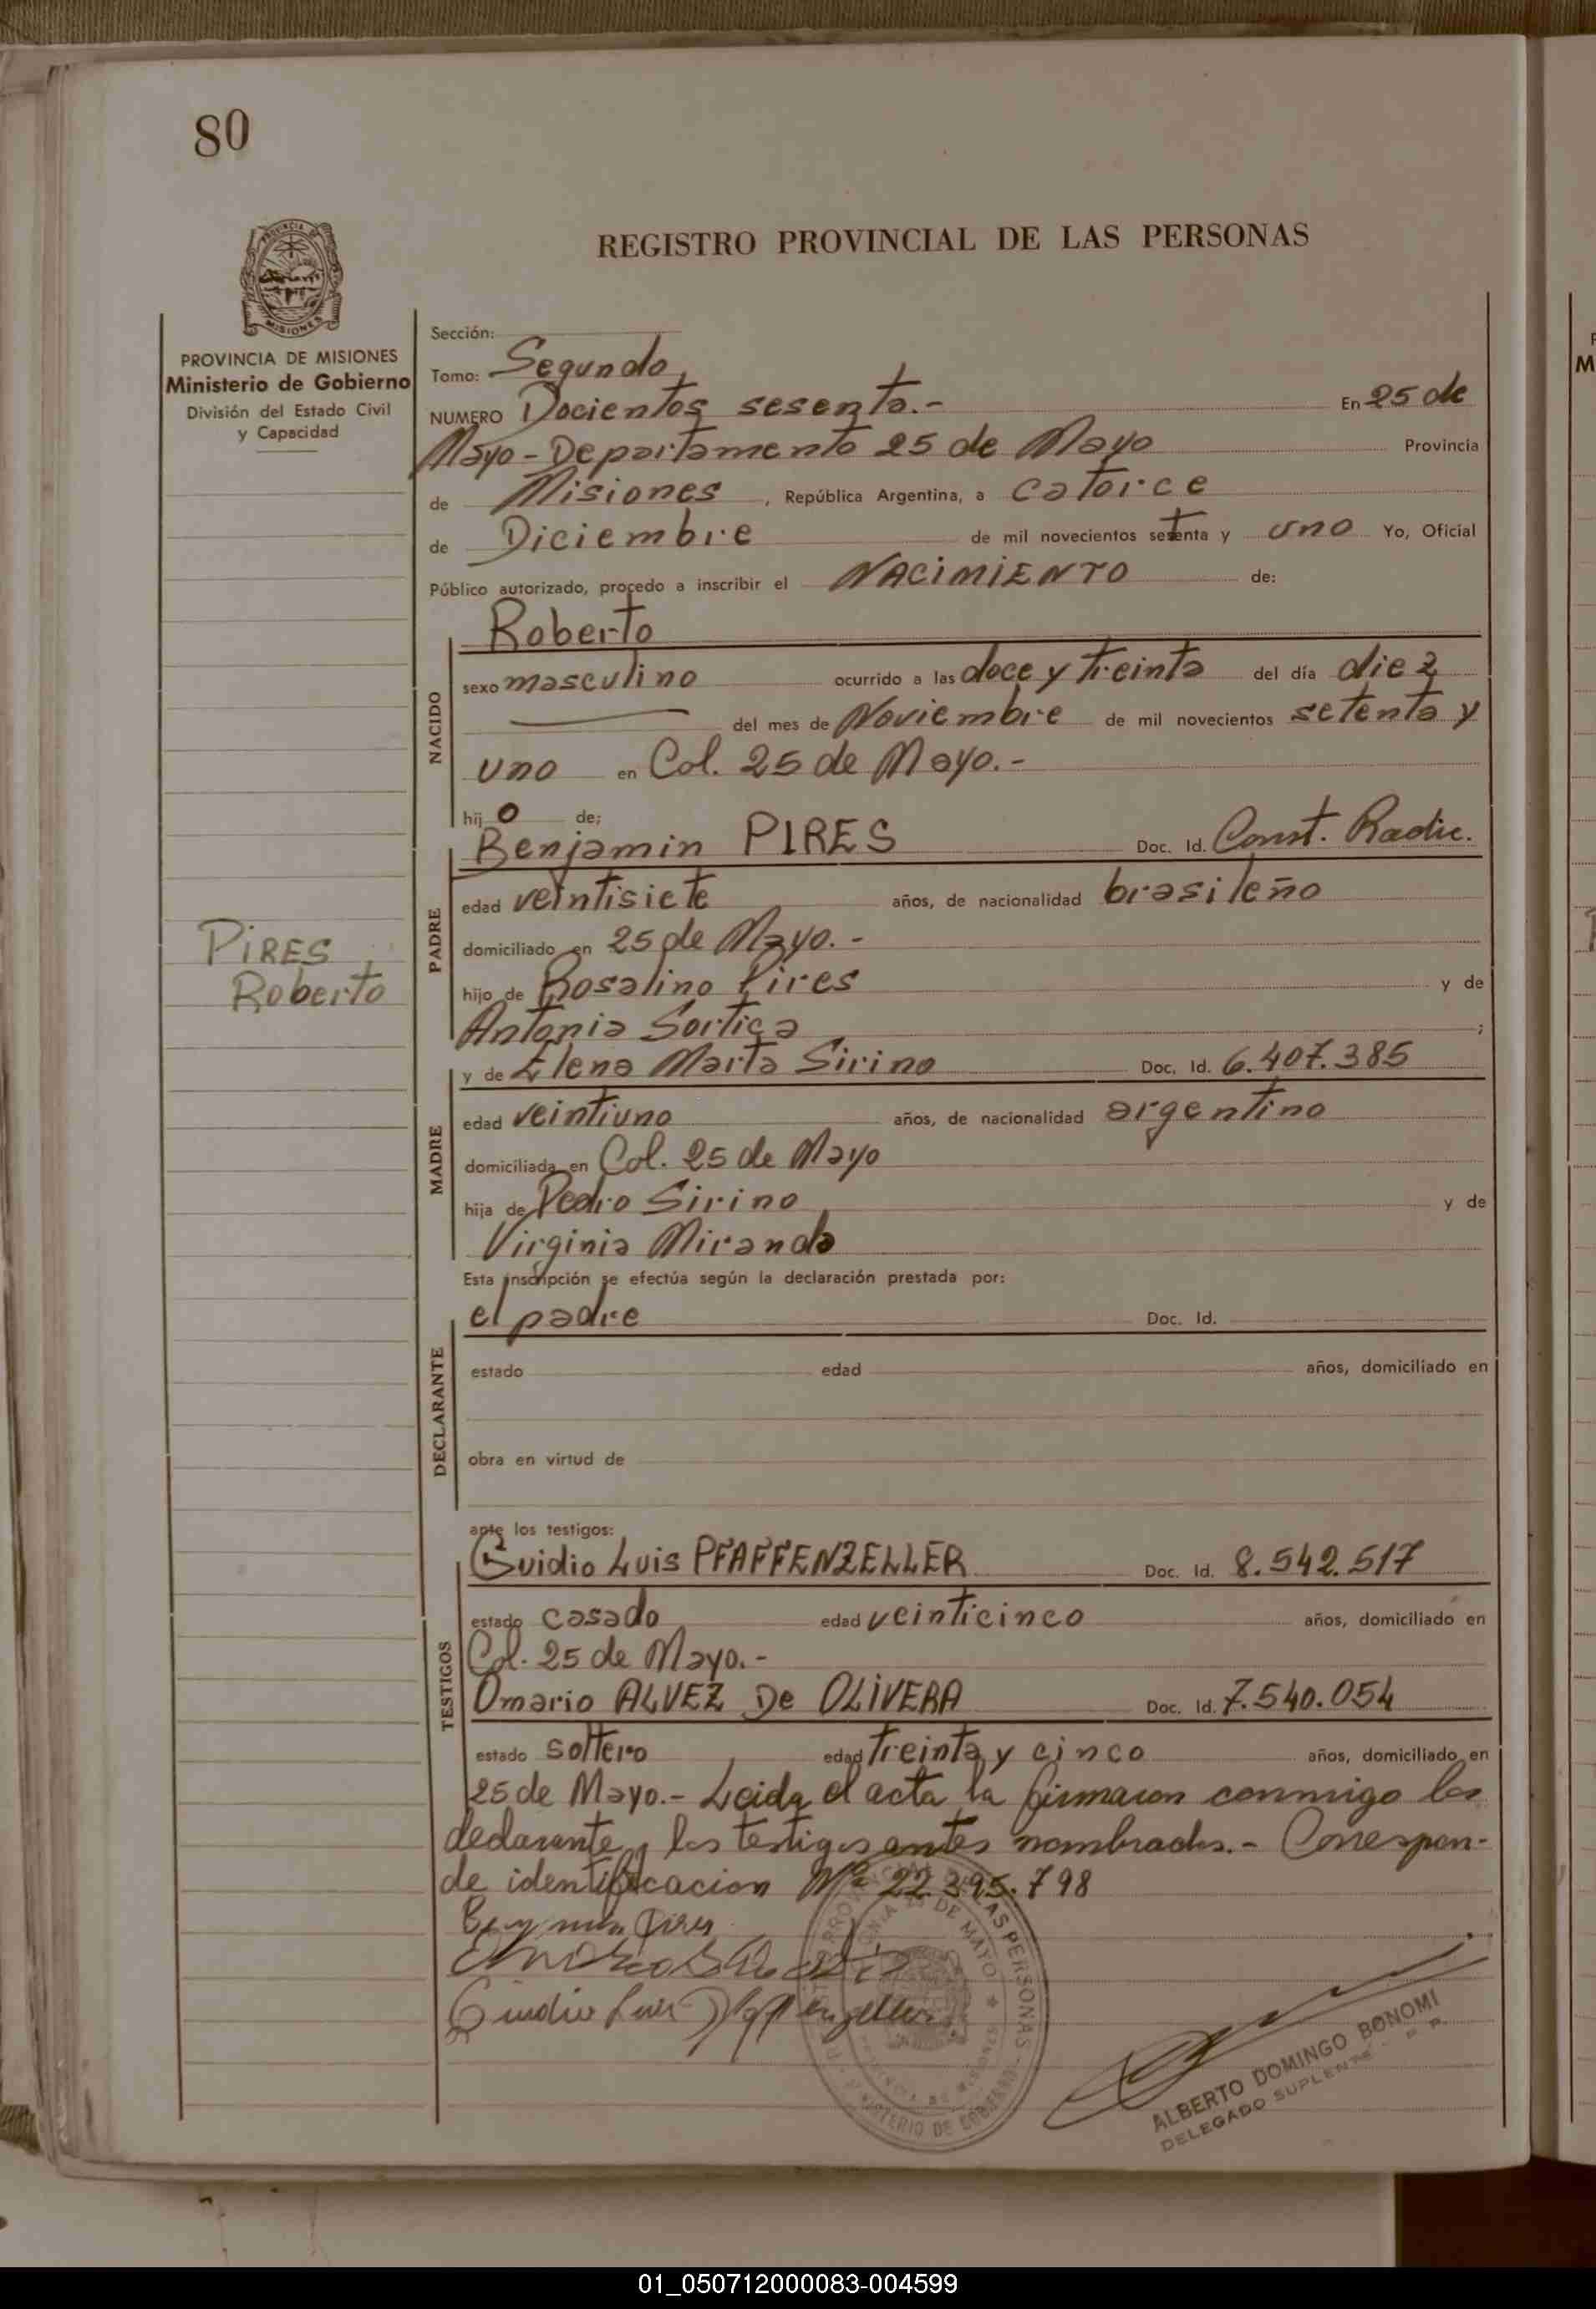 80
REGISTRO PROVINCIAL DE LAS PERSONAS
PROVINCIA DE MISIONES
Ministerio de Gobierno
División del Estado Civil
y Capacidad
Sección:
Tomo: Segundo
NUMERO Docientos sesenta.- En 25 de
Mayo - Departamento 25 de Mayo Provincia
de Misiones, República Argentina, a catorce
de Diciembre de mil novecientos setenta y uno Yo, Oficial
Público autorizado, procedo a inscribir el NACIMIENTO de:
Roberto
NACIDO
sexo masculino ocurrido a las doce y treinta del día diez
del mes de Noviembre de mil novecientos setenta y
uno en Col. 25 de Mayo.-
hij o de;
Benjamin PIRES Doc. Id. Const. Radic.
PADRE
edad veintisiete años, de nacionalidad brasileño
domiciliado en 25 de Mayo.-
PIRES
Roberto
hijo de Rosalino Pires y de
Antonia Sortica ;
y de Elena Marta Sirino Doc. Id. 6.407.385
MADRE
edad veintiuno años, de nacionalidad argentino
domiciliada en Col. 25 de Mayo
hija de Pedro Sirino y de
Virginia Miranda
Esta inscripción se efectúa según la declaración prestada por:
el padre Doc. Id.
DECLARANTE
estado edad años, domiciliado en
obra en virtud de
ante los testigos:
Guidio Luis PFAFFENZELLER Doc. Id. 8.542.517
TESTIGOS
estado casado edad veinticinco años, domiciliado en
Col. 25 de Mayo.-
Omario ALVEZ De OLIVERA Doc. Id. 7.540.054
estado soltero edad treinta y cinco años, domiciliado en
25 de Mayo.- Leida el acta la firmaron conmigo los
declarante y los testigos antes nombrados.- Correspon-
de identificacion Nº 22.395.798
ALBERTO DOMINGO BONOMI
DELEGADO SUPLENTE
01_050712000083-004599